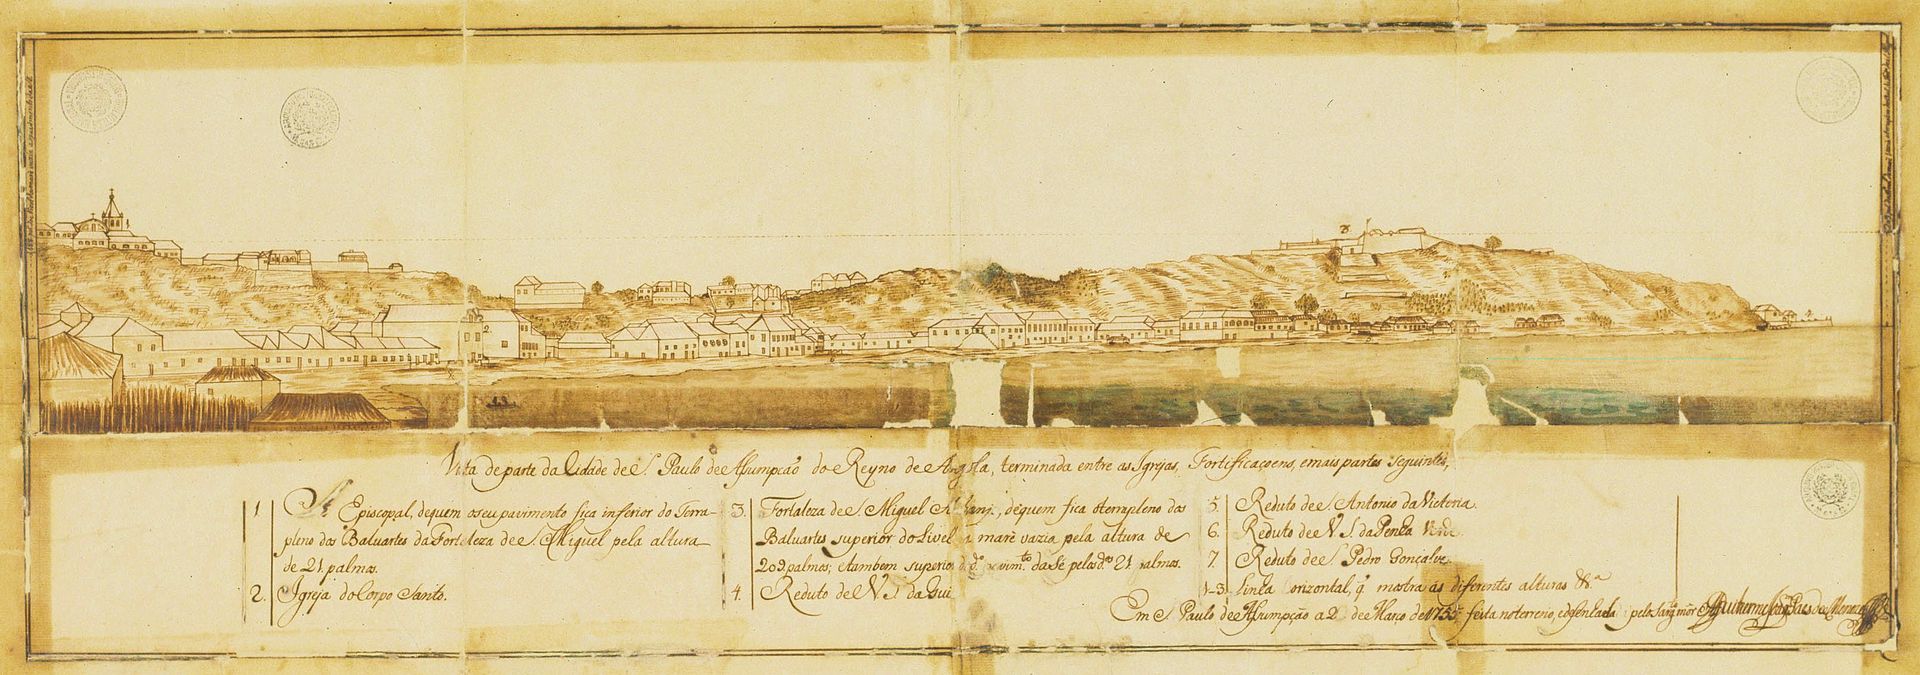 Vista de parte da Cidade de S. Paulo de Assumpção do Reyno de Angola, terminada entre as Igrejas, Fortificaçoens, e mais partes seguintes,
1. Sé Episcopal, de quem o seu pavimento fica inferior do Terra-
pleno dos Baluartes da Fortaleza de S. Miguel pela altura
de 21 palmos.
2. Igreja do Corpo Santo.
3. Fortaleza de S. Miguel de quem fica o terrapleno dos
Baluartes superior do Livel maré vazia pela altura de
209 palmos; e tambem superior da Sé pelos dos 21 palmos.
4. Reduto de N. S. da Gui
5. Reduto de S. Antonio da Victoria.
6. Reduto de N. S. da Penha
7. Reduto de S. Pedro Gonçalve
1-3. Linha orizontal, q. mostra as diferentes alturas &a
Em S. Paulo de Assumpção a 2 de Março de 1755 feita no terreno, e desenhada pelo Sargto mór
2
3